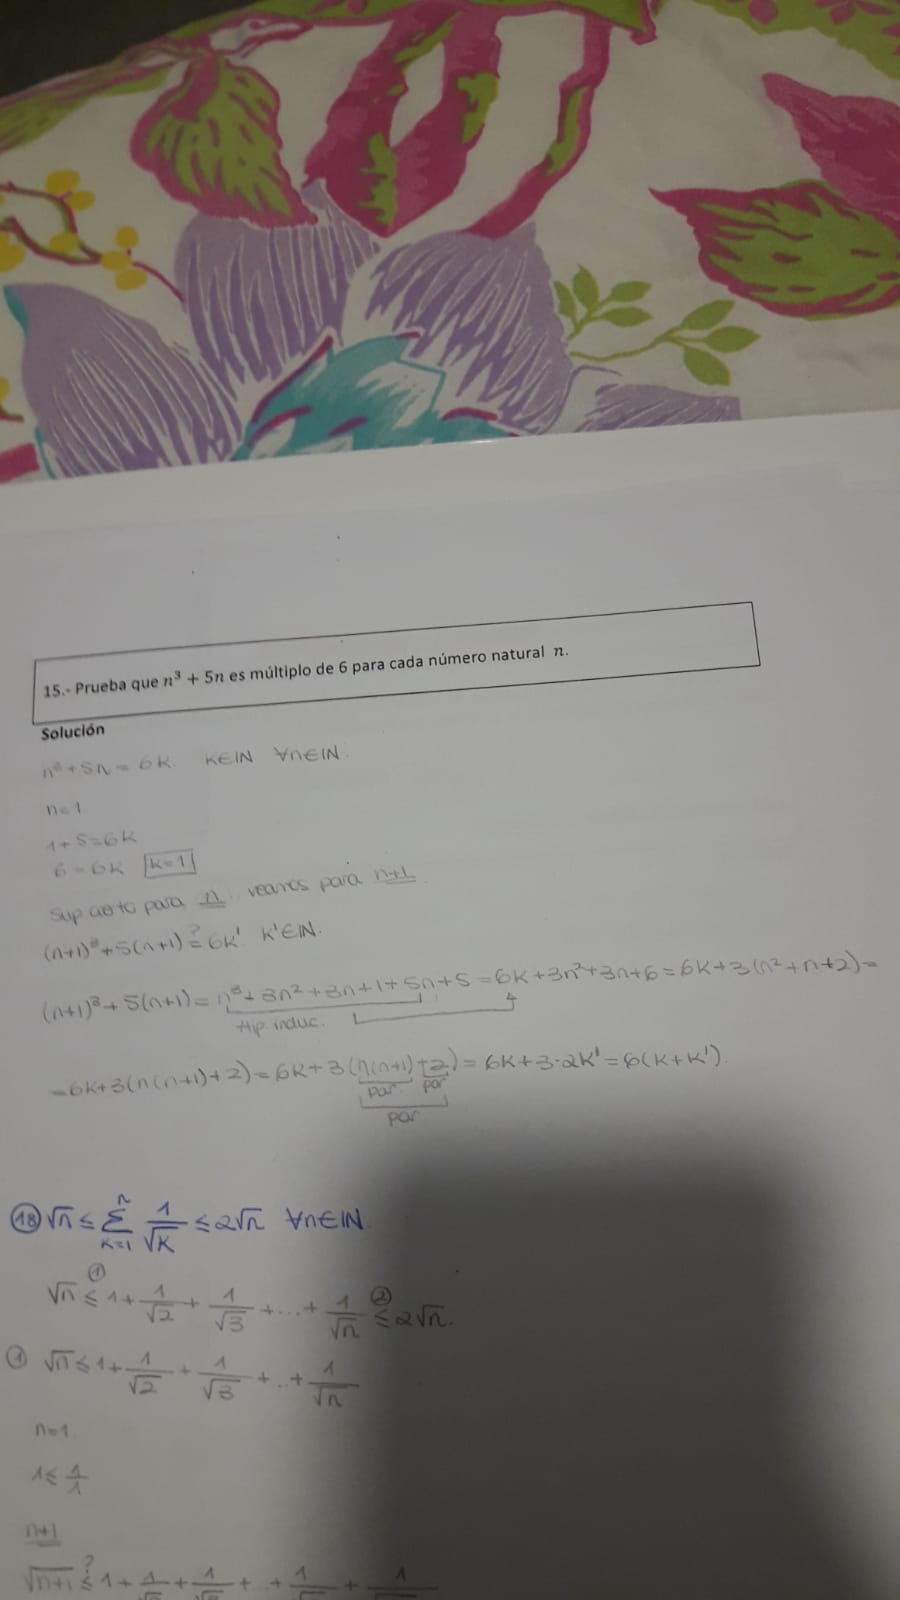 15.- Prueba que n³ + 5n es múltiplo de 6 para cada número natural n.
Solución
n³+5n = 6k. k∈ℕ ∀n∈ℕ.
n=1
1+5=6k
6=6k k=1
Sup cierto para n, veamos para n+1.
(n+1)³+5(n+1) ?= 6k' k'∈ℕ.
(n+1)³+5(n+1) = n³+3n²+3n+1+5n+5 = 6k+3n²+3n+6 = 6k+3(n²+n+2) =
Hip. induc.
=6k+3(n(n+1)+2) = 6k+3(n(n+1)+2) = 6k+3·2k' = 6(k+k').
par par
par
18 √n ≤ Σ_{k=1}^{n} 1/√k ≤ 2√n ∀n∈ℕ.
√n ≤① 1+1/√2+1/√3+...+1/√n ≤② 2√n.
① √n ≤ 1+1/√2+1/√3+..+1/√n
n=1
1≤1/1
n+1
√n+1 ?≤ 1+